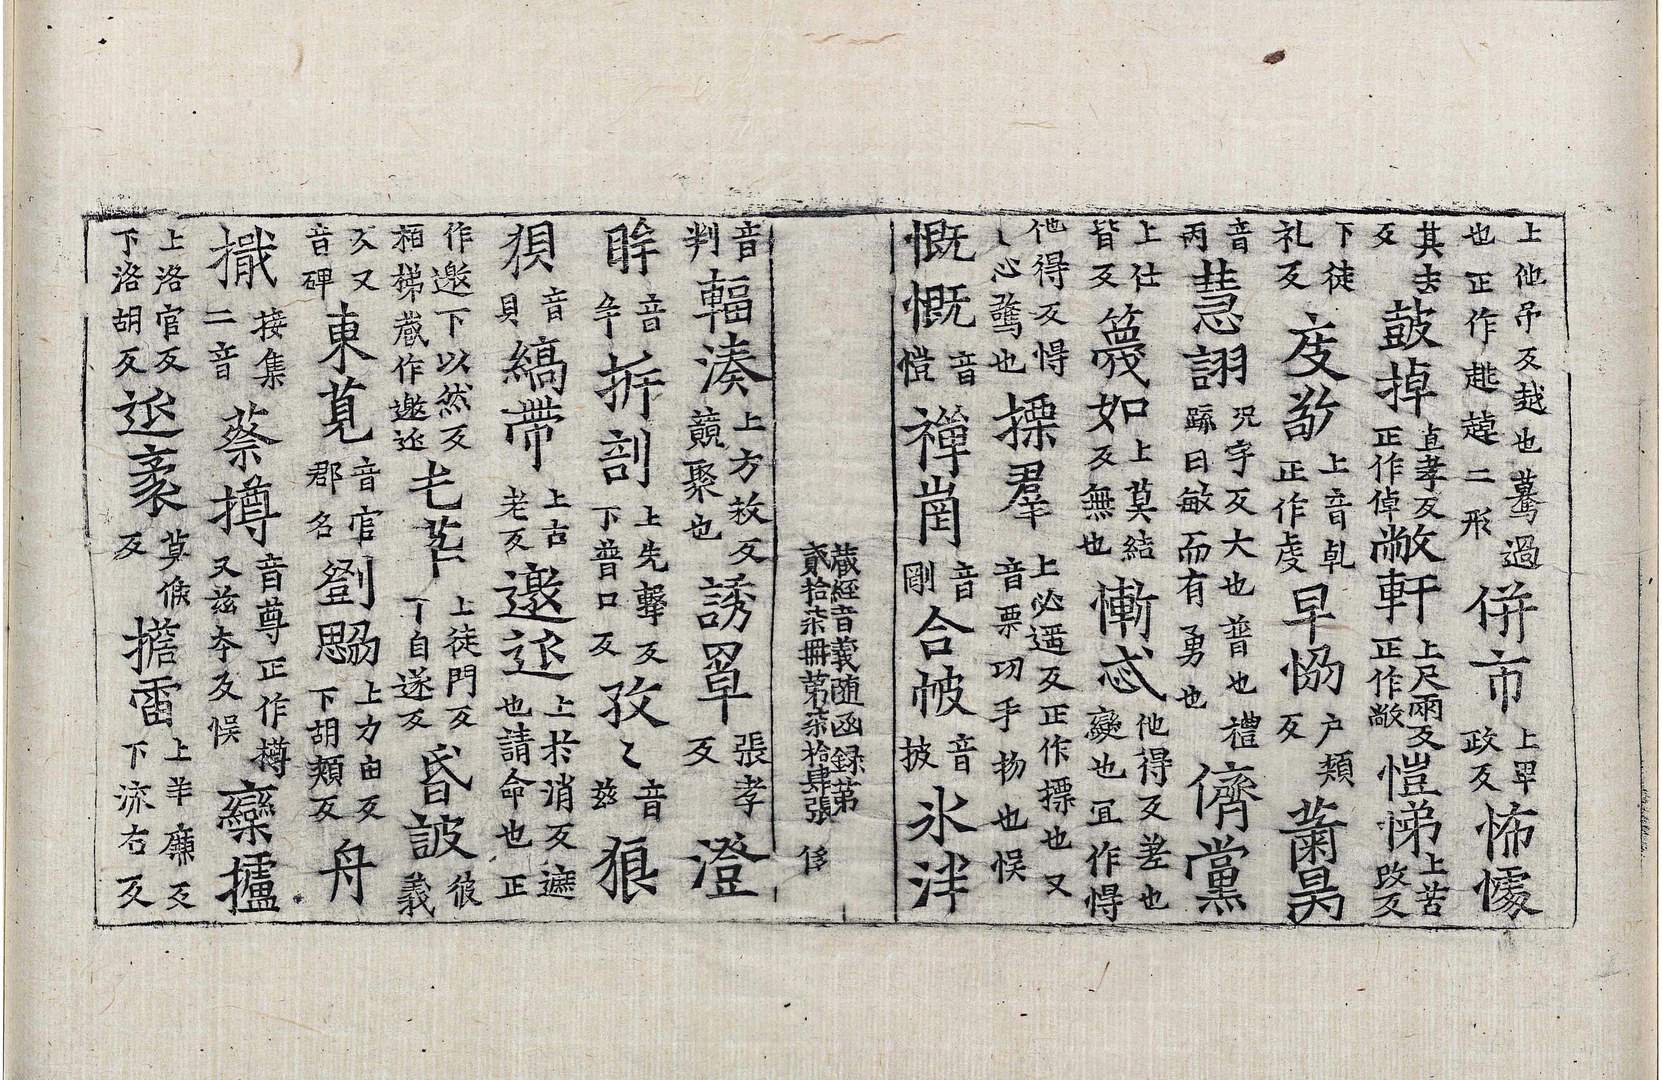 上他吊反越也驀過也正作趒趠二形併市上畀政反怖懅
其去反鼓掉卓孝反正作倬敞軒上尺兩反正作敞愷悌上苦改反
下徒礼反虔敬上音乹正作虔早恊户頰反蕭昊
音丙慧詡况字反大也普也禮䟽曰敏而有勇也儕黨
上仕皆反篾如上莫結反無也慚忒他得反差也變也冝作㥂
他得反㥂〻心驚也摽羣上必遥反正作摽也又音票㓛手扐也悮
慨慨音愷禪崗音剛合帔音披氷泮
藏經音義随函録第貳拾柒冊第柒拾肆張 侈
音判輻湊上方救反競聚也誘罩張孝反澄
眸音牟折剖上先擊反下普口反孜〻音兹狼
狽音貝縞帶上古老反邀迯上扵消反遮也請命也正
作邀下以然反栢梯蔵作邀迯屯芊上徒門反丁自遂反昏詖彼義
反又音碑東莧音官郡名劉勰上力由反下胡頰反舟
撠接集二音蔡撙音尊正作樽又兹夲反悮欒攎
上洛官反下洛胡反迯袤莫候反擔雷上羊廉反下流右反